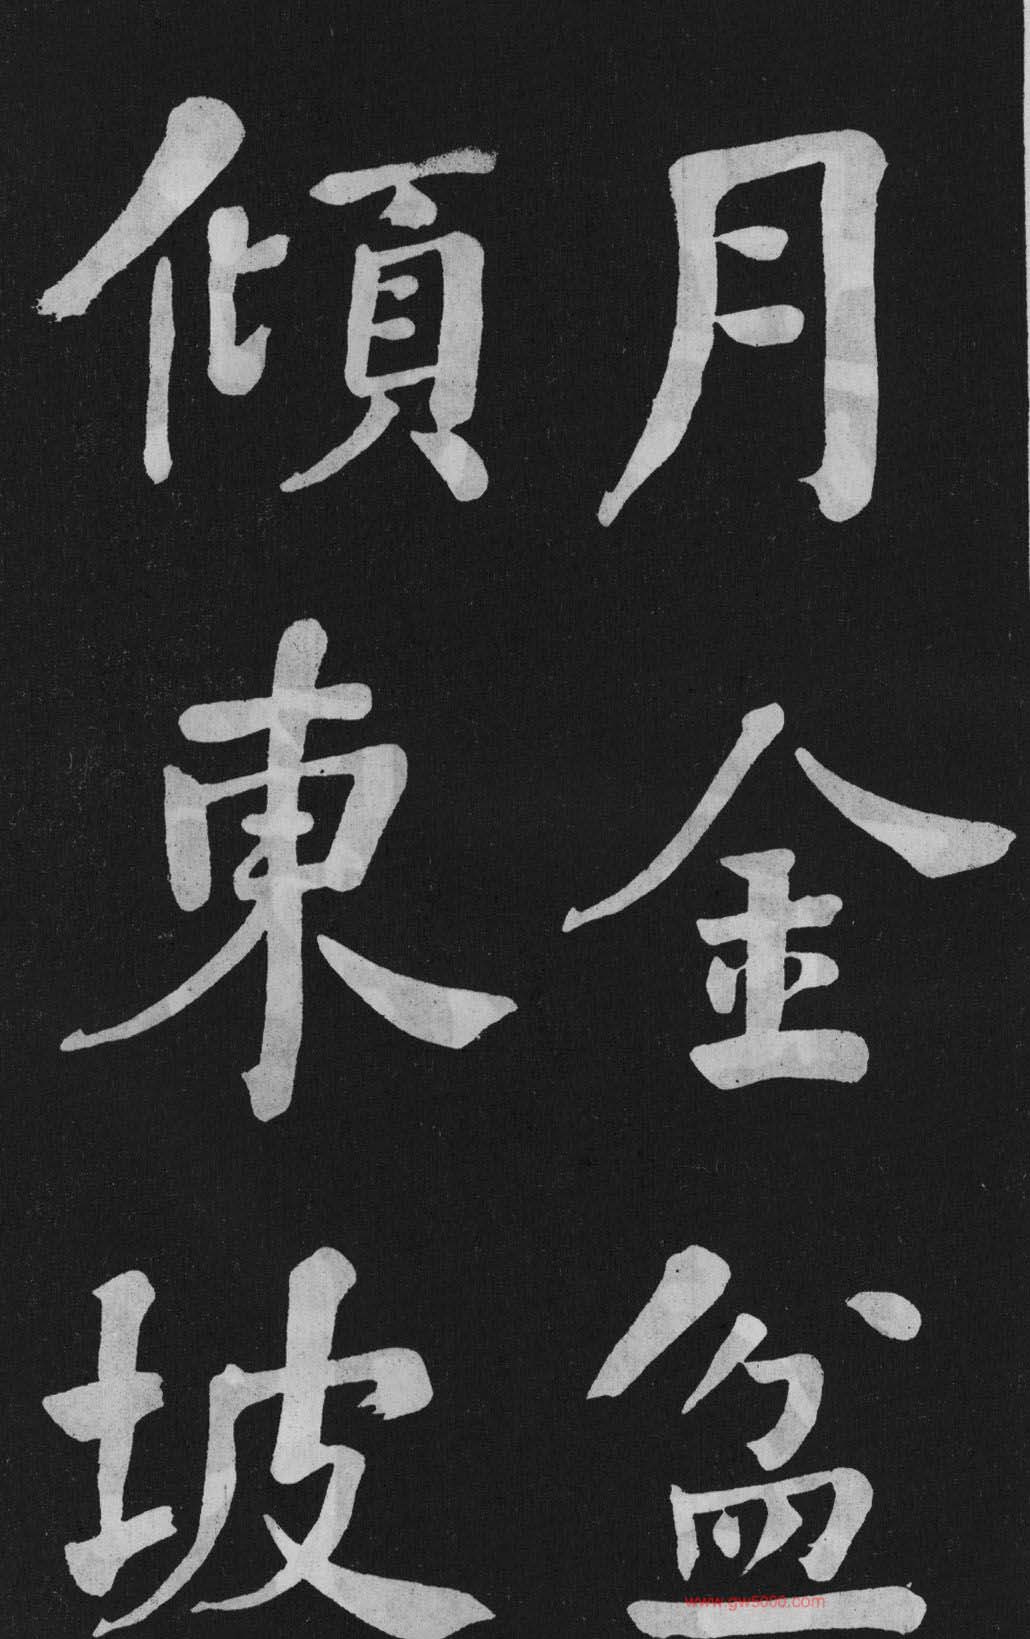 月金盆
傾東坡
www.gw5000.com